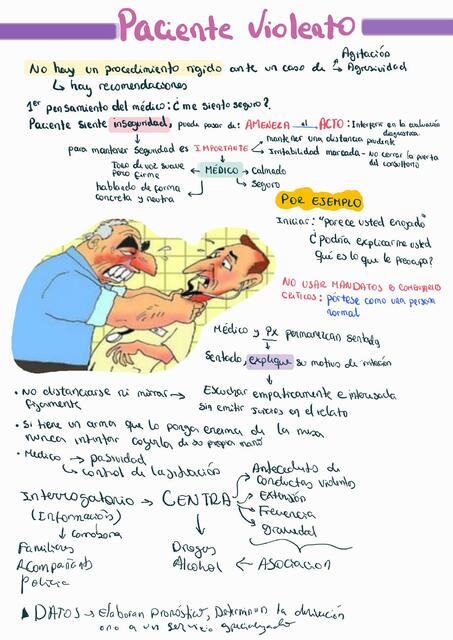 Paciente Violento
No hay un procedimiento rígido ante un caso de → Agitación
→ Agresividad
↳ hay recomendaciones
1er pensamiento del médico: ¿me siento seguro?
Paciente siente inseguridad, puede pasar de: AMENAZA al ACTO: Interferir en la evaluación
diagnóstica
para mantener seguridad es IMPORTANTE
mantener una distancia prudente
Irritabilidad marcada - No cerrar la puerta
del consultorio
Tono de voz suave
pero firme
MÉDICO
→ calmado
→ seguro
hablando de forma
concreta y neutra
POR EJEMPLO
Iniciar: "parece usted enojado"
¿Podría explicarme usted
Qué es lo que le preocupa?
NO USAR MANDATOS O COMENTARIOS
CRÍTICOS: pórtese como una persona
normal
Médico y Px permanezcan sentado
Sentado, explique su motivo de irritación
• No distanciarse ni mirar →
fijamente
Escuchar empáticamente e interesada
sin emitir juicios en el relato
• Si tiene un arma que lo ponga encima de la mesa
nunca intentar cogerla de su propia mano
• Medico → pasividad
↳ control de la situación
Interrogatorio → CENTRA
(Información)
↳ corrobora
Familiares
Acompañante
Policia
Antecedente de
conductas violentas
→ Extensión
→ Frecuencia
→ gravedad
Drogas
Alcohol ← ASOCIACION
▲ DATOS → Elaboran pronóstico, Determinan la derivación
o no a un servicio especializado